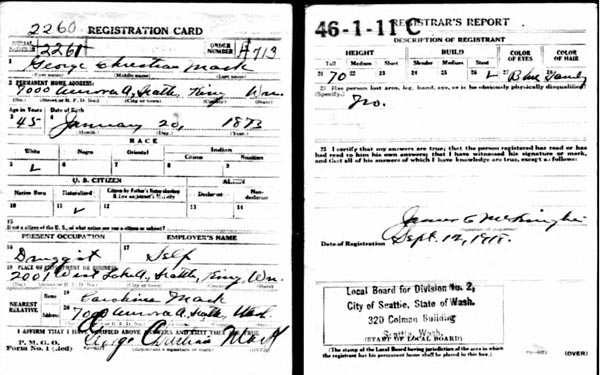 2260 REGISTRATION CARD
SERIAL NUMBER 2260 ORDER NUMBER A713
1 George Christian Mack
(First name) (Middle name) (Last name)
2 PERMANENT HOME ADDRESS:
7000 Aurora A, Seattle, King Wn.
(No.) (Street or R. F. D. No.) (City or town) (County) (State)
Age in Years Date of Birth
3 45 4 January 20, 1873
(Month.) (Day.) (Year.)
RACE
White Negro Oriental Indian
Citizen Noncitizen
5 6 7 8 9
U. S. CITIZEN ALIEN
Native Born Naturalized Citizen by Father's Naturalization Before Registrant's Majority Declarant Non-declarant
10 11 12 13 14
15
If not a citizen of the U. S., of what nation are you a citizen or subject?
PRESENT OCCUPATION EMPLOYER'S NAME
16 Druggist 17 Self
18 PLACE OF EMPLOYMENT OR BUSINESS:
2001 West Seattle, King, Wn.
(No.) (Street or R. F. D. No.) (City or town) (County) (State)
NEAREST RELATIVE Name 19 Caroline Mack
Address 20 7000 Aurora A, Seattle, Wash.
(No.) (Street or R. F. D. No.) (City or town) (State)
I AFFIRM THAT I HAVE VERIFIED ABOVE ANSWERS AND THAT THEY ARE TRUE
P. M. G. O.
Form No. 1 (Red) George Christian Mack
REGISTRAR'S REPORT
46-1-11 C
DESCRIPTION OF REGISTRANT
HEIGHT BUILD COLOR OF EYES COLOR OF HAIR
Tall Medium Short Slender Medium Stout
21 70 22 23 24 25 26 27 Blue 28
29 Has person lost arm, leg, hand, eye, or is he obviously physically disqualified?
(Specify.) No.
30 I certify that my answers are true; that the person registered has read or has
had read to him his own answers; that I have witnessed his signature or mark, and
that all of his answers of which I have knowledge are true, except as follows:
Date of Registration Sept. 12, 1918.
Local Board for Division No. 2,
City of Seattle, State of Wash.
320 Colman Building
Seattle, Wash.
(STAMP OF LOCAL BOARD)
(The stamp of the Local Board having jurisdiction of the area in which
the registrant has his permanent home shall be placed in this box.)
(OVER)